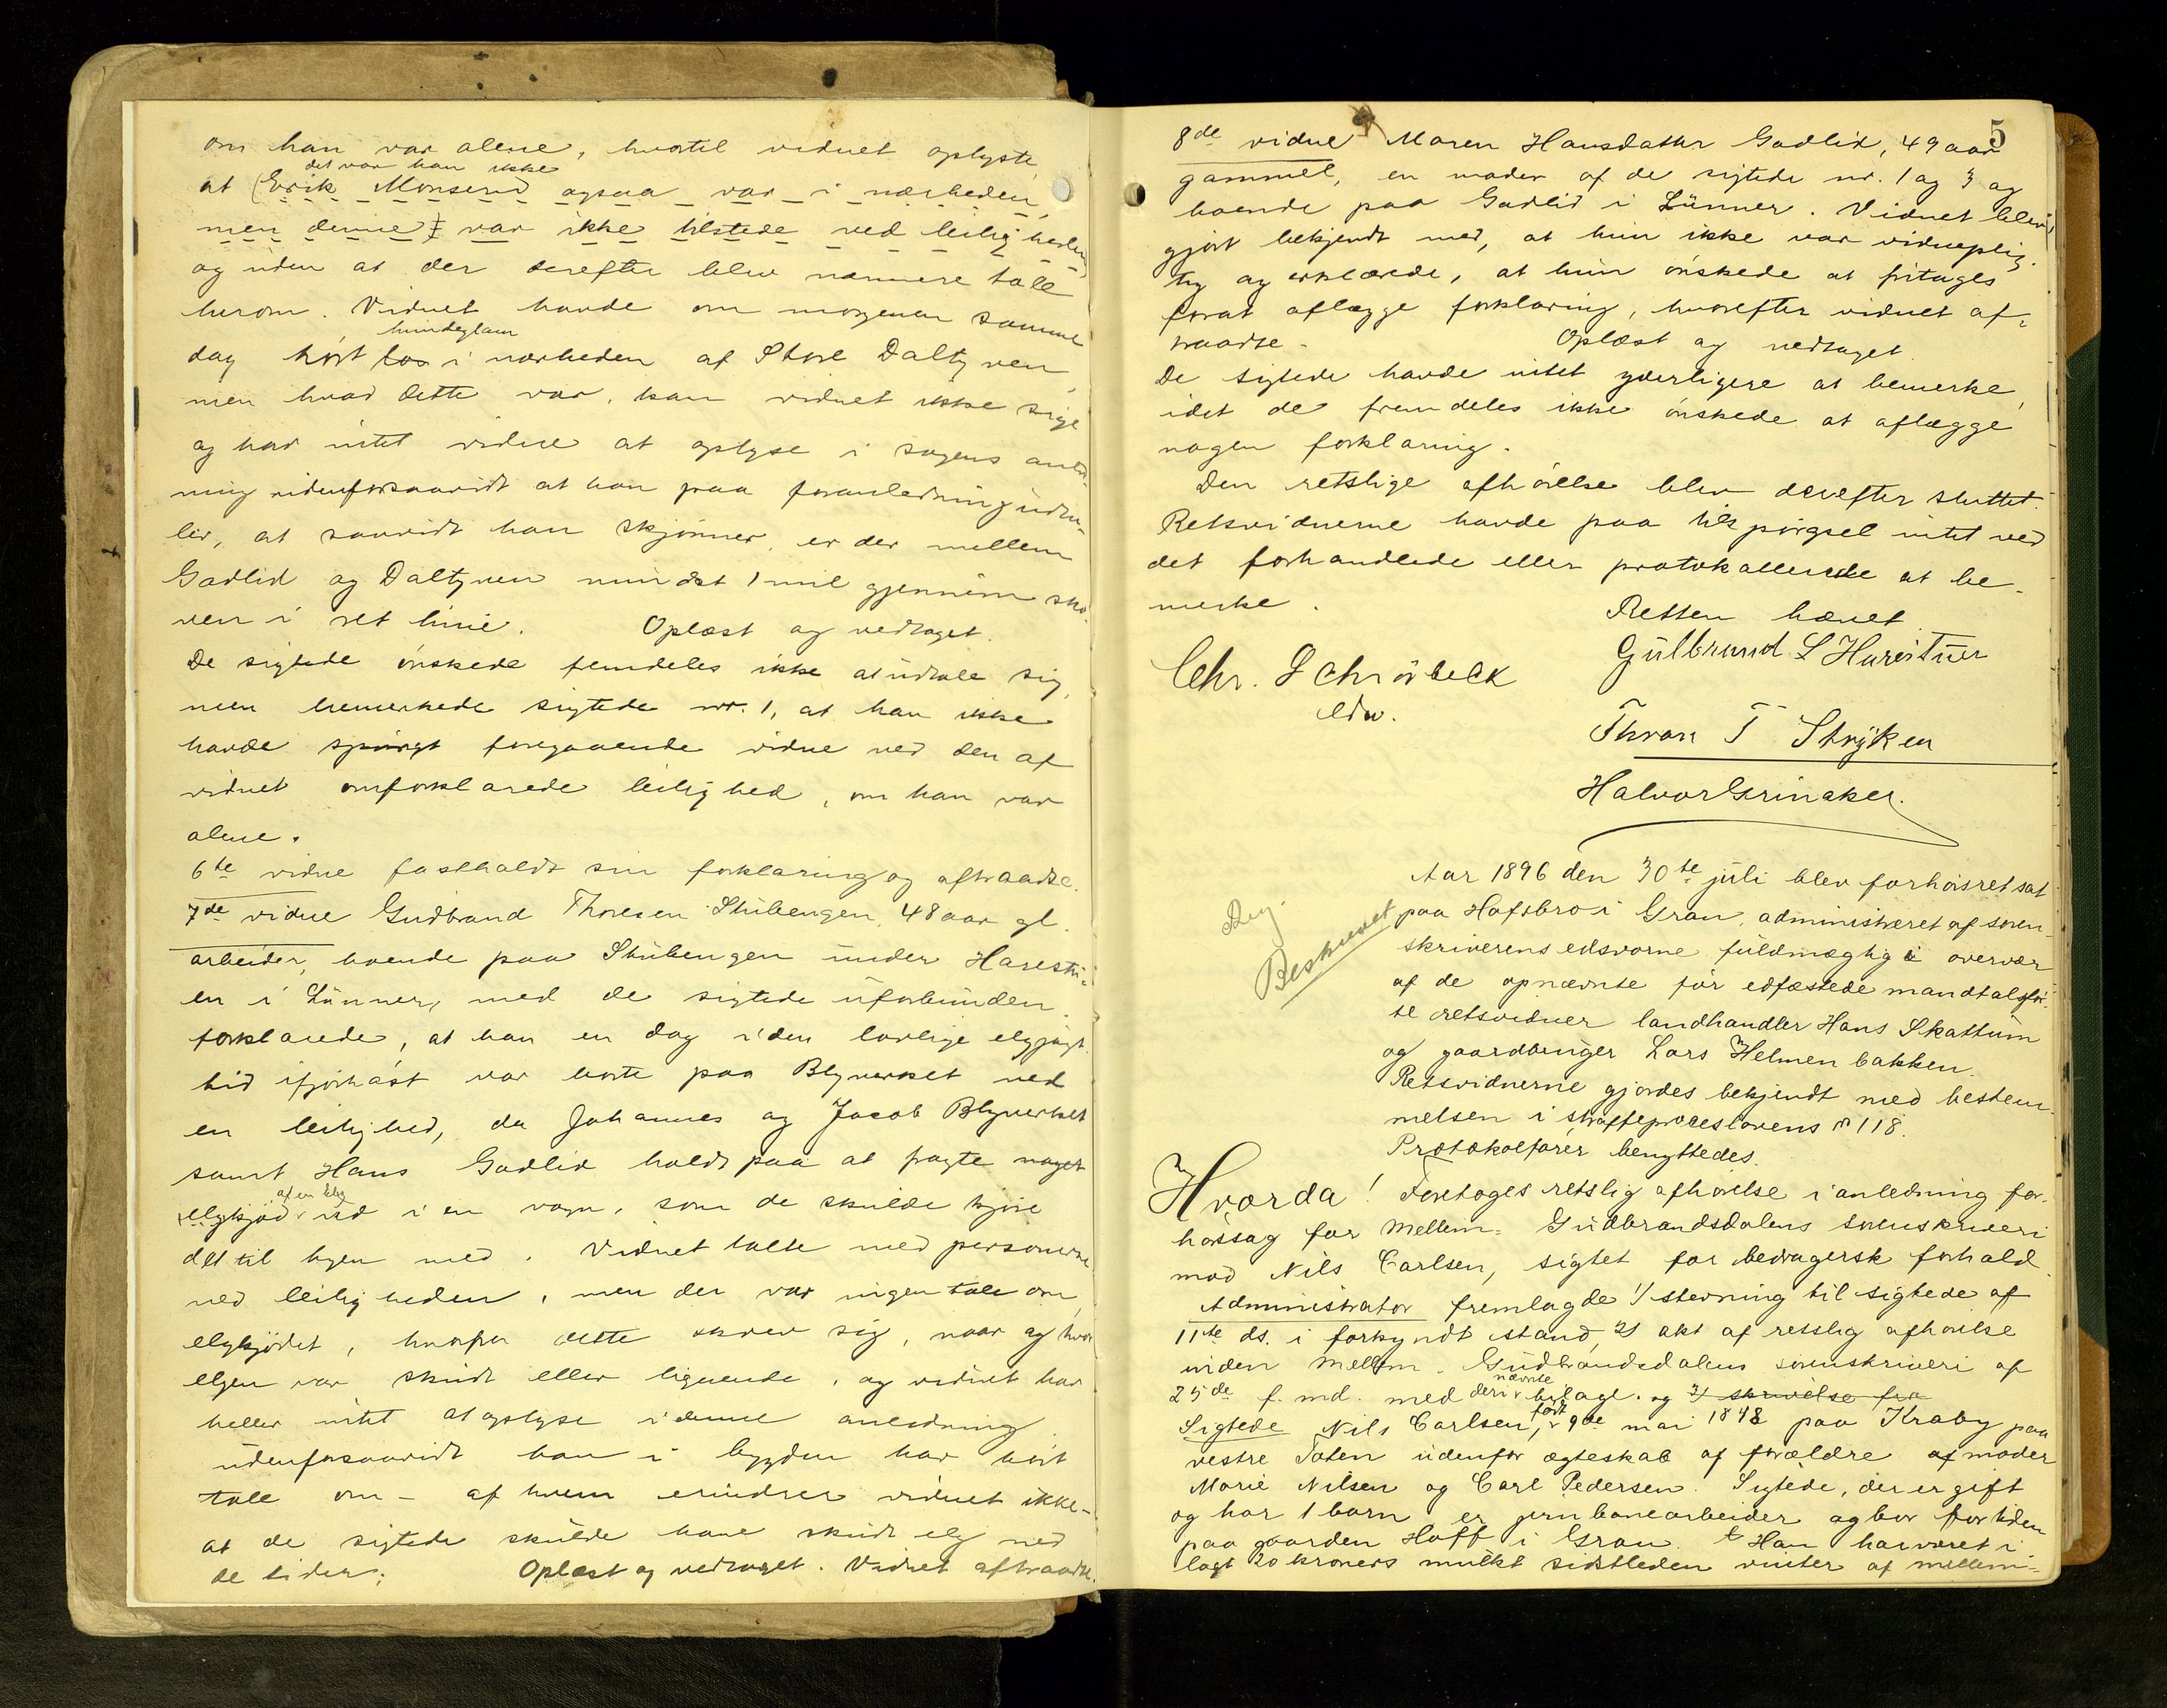 om han var alene, hvortil vidnet oplyste,
det var han ikke
at (Erik Monserud ogsaa var i nærheden,
men denne) var ikke tilstede ved leilig heden
og uden at der derefter blev nærmere tale
herom. Vidnet havde om morgenen samme
hundeglam
dag hørt los i nærheden af Store Daltyven,
men hvad dette var, kan vidnet ikke sige
og har intet videre at oplyse i sagens anled-
ning udenforsaavidt at han paa foranledning udta-
ler, at saavidt han skjønner, er der mellem
Gadlid og Daltyven mindst 1 mil gjennem sko-
ven i ret linie. Oplæst og vedtaget.
De sigtede ønskede fremdeles ikke at udtale sig,
men bemerkede sigtede nr. 1, at han ikke
havde spurgt foregaaende vidne ved den af
vidnet omforklarede leilighed, om han var
alene.
6te vidne fastholdt sin forklaring og aftraadte.
7de vidne Gudbrand Thoresen Stubengen 48 aar gl.
arbeider, boende paa Stubengen under Harestu-
en i Lunner, med de sigtede uforbunden.
forklarede, at han en dag i den lovlige elgjagt
tid ifjorhøst var borte paa Blyverket ved
en leilighed, da Johannes og Jacob Blyverket
samt Hans Gadlid holdt paa at fragte noget
af en elg
elgkjød ud i en vogn, som de skulde kjøre
det til byen med. Vidnet talte med personerne
ved leiligheden, men der var ingen tale om
elgkjødet, hvorfra dette skrev sig, naar og hvor
elgen var skudt eller lignende, og vidnet har
heller intet at oplyse i denne anledning
udenforsaavidt han i bygden har hørt
tale om - af hvem erindrer vidnet ikke -
at de sigtede skulde have skudt elg ved
de tider. Oplæst og vedtaget. Vidnet aftraadte.
5
8de vidne Maren Hansdatter Gadlid, 49 aar
gammel, en moder af de sigtede nr. 1 og 3 og
boende paa Gadlid i Lunner. Vidnet blev
gjort bekjendt med, at hun ikke var vidneplig-
tig og erklærede, at hun ønskede at fritages
forat aflægge forklaring, hvorefter vidnet af-
traadte. Oplæst og vedtaget.
De sigtede havde intet yderligere at bemerke,
idet de fremdeles ikke ønskede at aflægge
nogen forklaring.
Den retslige afhørelse blev derefter sluttet.
Retsvidnerne havde paa tilspørgsel intet ved
det forhandlede eller protokollerede at be-
merke. Retten hævet
Chr. Schrøbeck
edsv.
Gulbrand L Harestuen
Thron T Stryken
Halvor Grinaker.
Beskrevet
Aar 1896 den 30te juli blev forhørsret sat
paa Hofsbro i Gran, administreret af soren-
skriverens edsvorne fuldmægtig i overvær
af de opnævnte før edfæstede mandtalsfør-
te retsvidner landhandler Hans Skattum
og gaardbruger Lars Helmen bakken.
Retsvidnerne gjordes bekjendt med bestem-
melsen i straffeproceslovens § 118.
Protokolfører benyttedes.
Hvorda! Foretoges retslig afhørelse i anledning for-
hørssag for Mellem- Gudbrandsdalens sorenskriveri
mod Nils Carlsen, sigtet for bedragersk forhold.
Administrator fremlagde 1/ stevning til sigtede af
11te ds. i forkyndt stand, 2/ akt af retslig afhørelse
inden Mellem- Gudbrandsdalens sorenskriveri af
nævnte
25de f. md. med deri bilage. og 3/ skrivelse fra
født
Sigtede Nils Carlsen, 9de mai 1848 paa Kraby paa
vestre Toten udenfor ægteskab af forældre af moder
Marie Nilsen og Carl Pedersen. Sigtede, der er gift
og har 1 barn er jernbanearbeider og bor for tiden
paa gaarden Hoff i Gran. Han har været i
lagt 20 kroners mulkt sidstleden vinter af mellem-